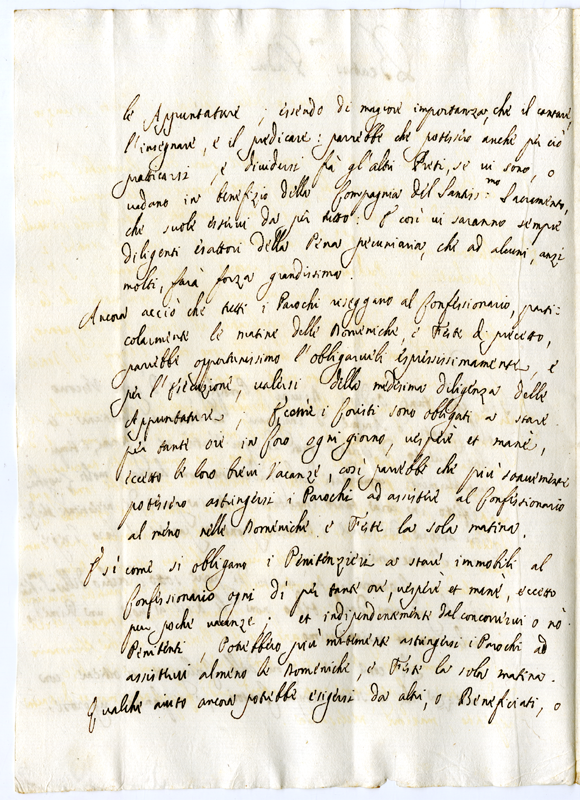 le Appuntature ; essendo di magiore importanza, che il cantare,
l'insegnare, e il predicare: parrebbe che potessero anche per ciò
praticarsi, e dividersi fà gl'altri Preti, se vi sono, o
vadano in benefizio della Compagnia del Santiss:mo Sacramento,
che suole esservi da per tutto: E così vi saranno sempre
diligenti esattori della Pena pecuniaria, che ad alcuni, anzi
molti, farà forza grandissima.
Ancora acciò che tutti i Parochi reseggano al Confessionario, parti-
colarmente le matine delle Domeniche, e Feste di precetto,
parrebbe opportunissimo l'obligarveli espressissimamente, e
per l'esecuzione, valersi della medesima diligenza delle
Appuntature ; E come i Coristi sono obligati a stare
per tante ore in Coro ogni giorno, vespere et mane,
eccetto le loro brevi vacanze, così parrebbe che più soavemente
potessero astringersi i Parochi ad assistere al Confessionario
al meno nelle Domeniche e Feste la sola matina.
E sì come si obligano i Penitenzieri a stare immobili al
Confessionario ogni dì per tante ore, vespere et mane, eccetto
pur poche vacanze ; et indipendentemente del concorrervi o nò
Penitenti, Potrebbero più mitemente astringersi i Parochi ad
assistervi almeno le Domeniche, e Feste la sola matina.
Qualche aiuto ancora potrebbe esigersi da altri, o Beneficiati, o